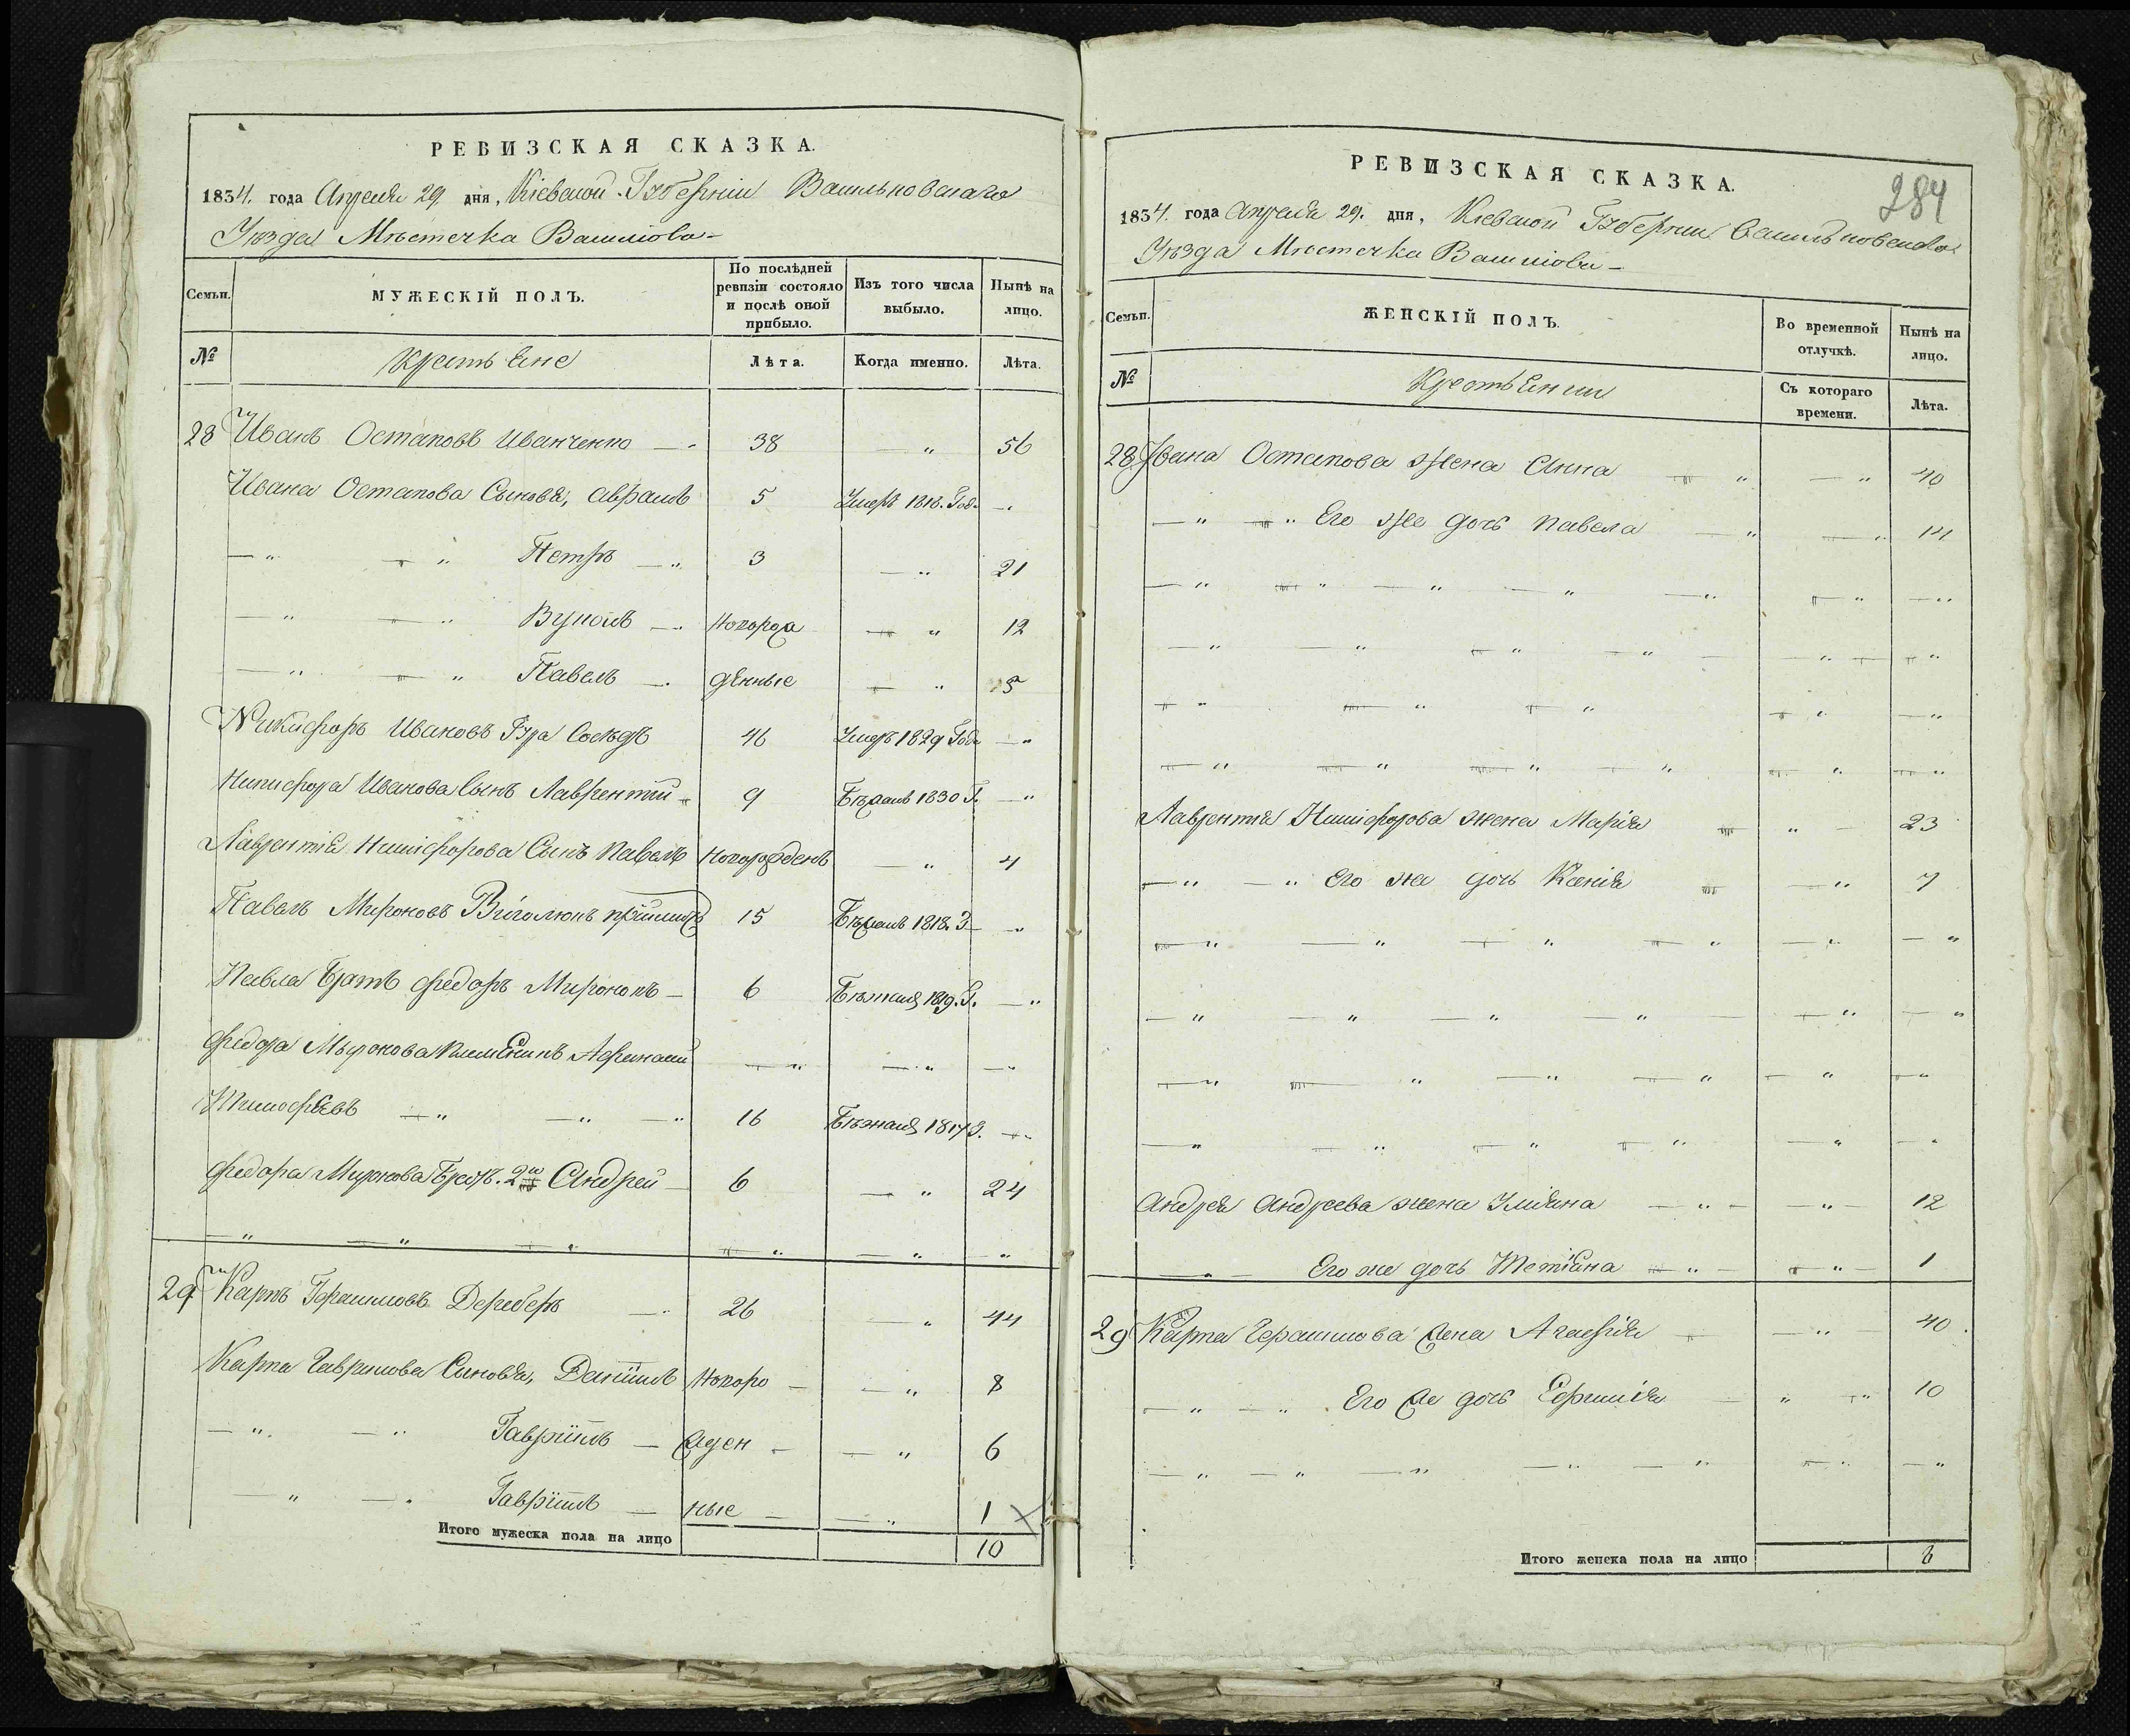 РЕВИЗСКАЯ СКАЗКА.
1834. года Апреля 29. дня, Кіевской Губерніи Васильковскаго
Уѣзда Мѣстечка
Семьи. МУЖЕСКІЙ ПОЛЪ. По послѣдней ревизіи состояло и послѣ оной прибыло. Изъ того числа выбыло. Нынѣ на лицо.
№ Крестьяне Лѣта. Когда именно. Лѣта.
28 Иванъ Остаповъ Иванченко — „ 38 — „ 56
Ивана Остапова Сыновья, Авраамъ 5 Умеръ 1818. Год. — „
— „ — „ Петръ — „ 3 — „ 21
— „ — „ — „ Новоро — „ 12
— „ — „ Павелъ — „ денные — „ 5
Никифоръ Ивановъ Сосѣдъ 46 Умеръ 1829 Года — „
Никифора Иванова Сынъ Лаврентій 9 Бѣжалъ 1830 Г. — „
Лаврентія Никифорова Сынъ Павелъ Новорожденъ — „ 4
Павелъ Мироновъ 15 Бѣжалъ 1818. Г — „
Павла Братъ Федоръ Мироновъ — 6 Бѣжалъ 1819. Г. — „
Федора Миронова Афанасій — „ — „ — „
Тимофѣевъ — „ — „ — „ 16 Бѣжалъ 1817 Г. — „
Федора Миронова Братъ. 2й Андрей — 6 — „ 24
— „ — „ — „ — „ — „ — „
29 Карпъ Герасимовъ — „ 26 — „ 44
Карпа Сыновья, Даніилъ Новоро — — „ 8
— „ — „ Гавріилъ — жден — — „ 6
— „ — „ Гавріилъ — ные — — „ 1
Итого мужеска пола на лицо 10
284
РЕВИЗСКАЯ СКАЗКА.
1834. года Апреля 29. дня, Кіевской Губерніи Васильковскаго
Уѣзда Мѣстечка
Семьи. ЖЕНСКІЙ ПОЛЪ. Во временной отлучкѣ. Нынѣ на лицо.
№ Крестьянки Съ котораго времени. Лѣта.
28 Ивана Остапова жена Анна — „ — „ 40
— „ — „ Его же дочь Павела — „ — „ 14
— „ — „ — „ — „ — „ — „ — „
— „ — „ — „ — „ — „ — „
— „ — „ — „ — „ — „
— „ — „ — „ — „ — „ — „
Лаврентія Никифорова жена Марія — „ — 23
— „ — „ Его же дочь Ксенія — — „ 7
— „ — „ — „ — „ — „ — „
— „ — „ — „ — „ — „ — „
— „ — „ — „ — „ — „ — „
— „ — „ — „ — „ — „ — „
Андрея Андреева жена Уліяна — „ — — „ — 12
— „ — Его же дочь Тетіана — „ — — „ — 1
29 Карпа Герасимова жена Агафія — — „ 40
— „ — „ Его же дочь — „ — „ 10
— „ — „ — „ — „ — „ — „ — „
Итого женска пола на лицо 8